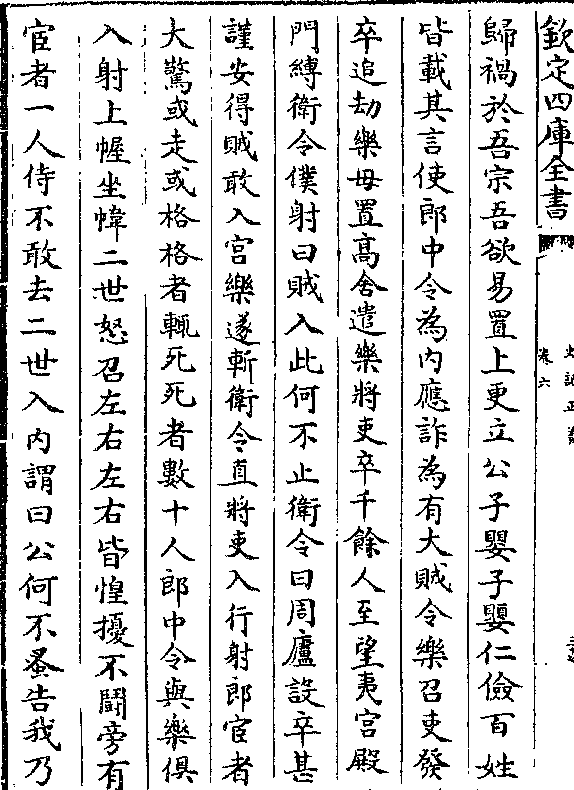 欽定四庫全書
史記正義
卷六
歸禍於吾宗吾欲易置上更立公子嬰子嬰仁儉百姓
皆載其言使郎中令為内應詐為有大賊令樂召吏發
卒追劫樂母置髙舍遣樂將吏卒千餘人至望夷宫殿
門縛衛令僕射曰賊入此何不止衛令曰周廬設卒甚
謹安得賊敢入宫樂遂斬衛令直將吏入行射郎宦者
大驚或走或格格者輒死死者數十人郎中令與樂俱
入射上幄坐幃二世怒召左右左右皆惶擾不鬭旁有
宦者一人侍不敢去二世入内謂曰公何不蚤告我乃